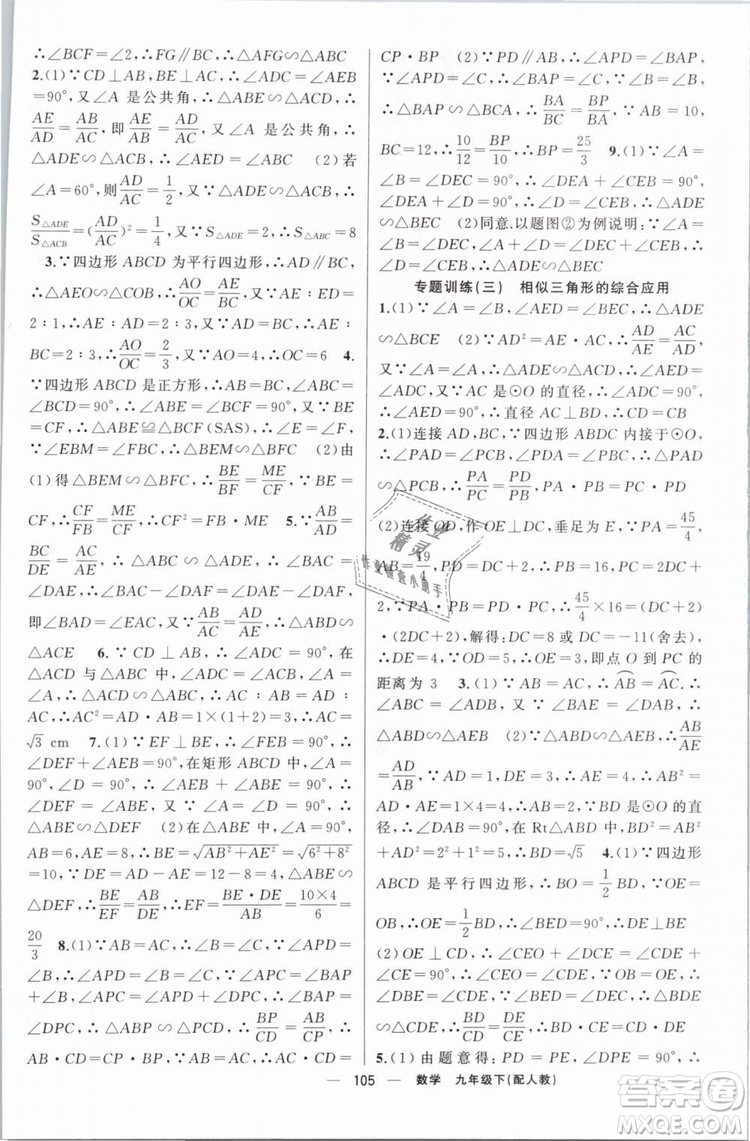 ∴∠BCF=∠2,∴FG∥BC,∴△AFG∽△ABC
2.(1)∵CD⊥AB,BE⊥AC,∴∠ADC=∠AEB
=90°,又∠A 是公共角,∴△ABE∽△ACD,∴
AE/AD=AB/AC,即AE/AB=AD/AC,又∵∠A 是公共角,∴
△ADE∽△ACB,∴∠AED=∠ABC (2)若
∠A=60°,则AD/AC=1/2,又∵△ADE∽△ACB,∴
S△ADE/S△ACB=(AD/AC)²=1/4,又∵S△ADE=2,∴S△ACB=8
3.∵四边形 ABCD 为平行四边形,∴AO/OC=AE/BC,∵AE:ED=
2:1,∴AE:AD=2:3,∵AD=BC,∴AE:
BC=2:3,∴AO/OC=2/3,∵AO=4,∴OC=6 4.
∵四边形 ABCD 是正方形,∴AB=BC,∠ABC
=∠BCD=90°,∴∠ABE=∠BCF=90°,又∵BE
=CF,∴△ABE≌△BCF(SAS),∴∠E=∠F,
∵∠EBM=∠FBC,∴△EBM∽△FBC (2)由
(1)得△EBM∽△FBC,∴BE/BF=ME/CF,∵BE=
CF,∴CF/FB=MF/CF,∴CF²=FB·ME 5.∵AB/AD=
BC/DE=AC/AE,∴△ABC∽△ADE,∴∠BAC=
∠DAE,∴∠BAC-∠DAF=∠DAE-∠DAF,
即∠BAD=∠CAE,∵AB/AD=AC/AE,∴△ABD∽
△ACE 6.∵CD⊥AB,∴∠ADC=90°,∵在△ACD
与△ABC 中,∠ACB=∠ADC=90°,∠A=∠A,
∴△ACD∽△ABC,∴AC:AB=AD:
AC,∴AC²=AD·AB=1×(1+2)=3,∴AC=
√3 cm 7.(1)∵EF⊥BE,∴∠FEB=90°,∴
∠DEF+∠AEB=90°,∵在矩形ABCD中,∴∠A
=90°,∠ABE+∠AEB=90°,∴∠DEF=
∠ABE,又∵∠A=∠D=90°,∴
△ABE∽△DEF (2)在△ABE 中,∠A=90°,
AB=6,AE=8,∴BE=√AB²+AE²=√6²+8²
=10,∴DE=AD-AE=12-8=4,∵△ABE∽
△DEF,∴BE/EF=AB/DE,∴EF=BE·DE/AB=10×4/6=
20/3 8.(1)∵AB=AC,∴∠B=∠C,∵∠APD=
∠B,∴∠APD=∠B=∠C,∵∠APC=∠BAP
+∠B,∠APC=∠APD+∠DPC,∴∠BAP=
∠DPC,∴△ABP∽△PCD,∴BP/CD=AB/CP,
∴AB·CD=CP·BP,∵AB=AC,∴AC·CD=
CP·BP (2)∵PD∥AB,∴∠APD=∠BAP,
∵∠APD=∠C,∴∠BAP=∠C,∵∠B=∠B,
∴△ABP∽△BCA,∴BA/BC=BP/BA,∵AB=10,
BC=12,∴10/12=BP/10,∴BP=25/3 9.(1)∵∠A=
∠B=∠DEC=90°,∴∠DEA+∠CEB=90°,
∵∠DEA+∠D=90°,∴∠D=∠CEB,∴△ADE
∽△BEC (2)同意.以题图②为例说明:∵∠A=
∠B=∠DEC,∠A+∠D=∠DEC+∠CEB,∴
∠D=∠CEB,∴△ADE∽△BEC
专题训练(三) 相似三角形的综合应用
1.(1)∵∠A=∠BCD,∠ADE=∠CBE,∴△ADE
∽△BCE (2)∵AD²=AE·AC,∴AE/AD=AD/AC,
又∵∠A=∠A,∴△ADE∽△ACD,∴∠AED=
∠ADC,又∵AC是⊙O 的直径,∴∠ADC=90°,
∴∠AED=90°,∴直径 AC⊥BD,∴CD=CB
2.(1)连接 AD,BC,∵四边形 ABDC 内接于⊙O,
∴∠PAD=∠PCB,∠PBC=∠PDA,
∴△PAD∽△PCB,∴PA/PC=PD/PB,∴PA·PB=PC·PD
(2)连接OD,作OE⊥DC,垂足为E,∵PA=45/4,
AB=19/4,∴PB=16,PC=PD+CD=2DC+
2,∵PA·PB=PD·PC,∴45/4×16=(DC+2)
·(2DC+2),解得:DC=8 或 DC=-11(舍去),
∴DE=4,∵OD=5,∴OE=3,即点 O 到 PC的
距离为 3 3.(1)∵AB=AC,∴AB=AC,∴
∠ABC=∠ADB,又∠BAE=∠DAB,
∴△ABE∽△ADB (2)∵△ABE∽△ADB,∴AB/AD=AE/AB,
∴AB²=AD·AE=1×4=4,∴
AB=2,∵BD是⊙O 的直径,
∴∠DAB=90°,在Rt△ABD中,BD²=
AB²+AD²=2²+1²=5,∴BD=√5 4.(1)∵四边形
ABCD 是平行四边形,∴BO=1/2BD,∵OE=
OB,∴OE=1/2BD,∴∠BED=90°,∴DE⊥BE
(2)∵OE⊥CD,∴∠CEO+∠DCE=∠CDE+
∠DCE=90°,∴∠CEO=∠CDE,∵OB=OE,
∴∠DBE=∠CEO,∴∠DBE=∠CDE,∵∠BED
=∠BED,∴△BDE
∽△DCE,∴BD/CD=DE/CE,∴BD·CE=CD·DE
5.(1)由题意得:∵∠BAC=∠AGF=90°,∴
— 105 — 数学 九年级下(配人教)
作业精灵
作业检查小助手
答案圈
MXQE.COM